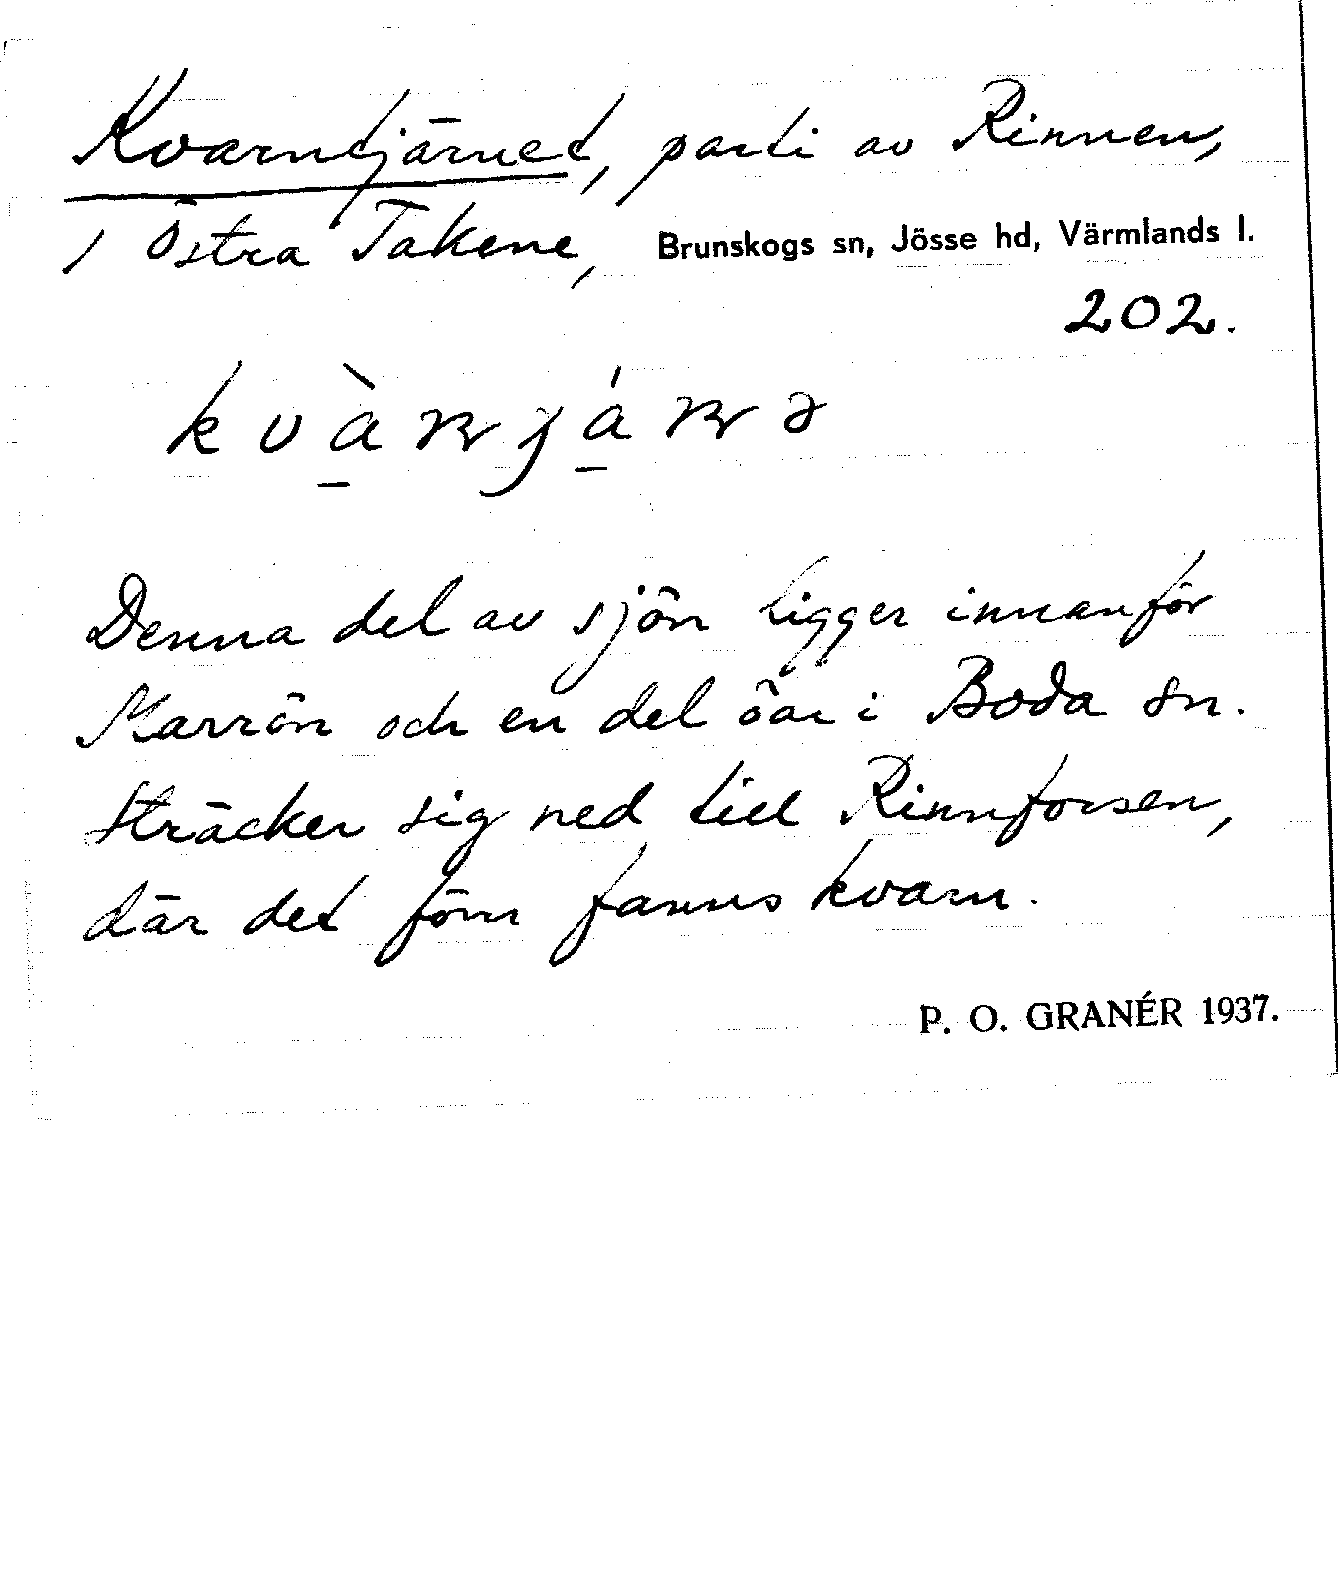 Kvarntjärnet, parti av Rinnen,
i Östra Takene, Brunskogs sn, Jösse hd, Värmlands l.
202.
Denna del av sjön ligger innanför
Marrön och en del öar i Boda sn.
Sträcker sig ned till Rinnforsen,
där det förr fanns kvarn.
P. O. GRANÉR 1937.